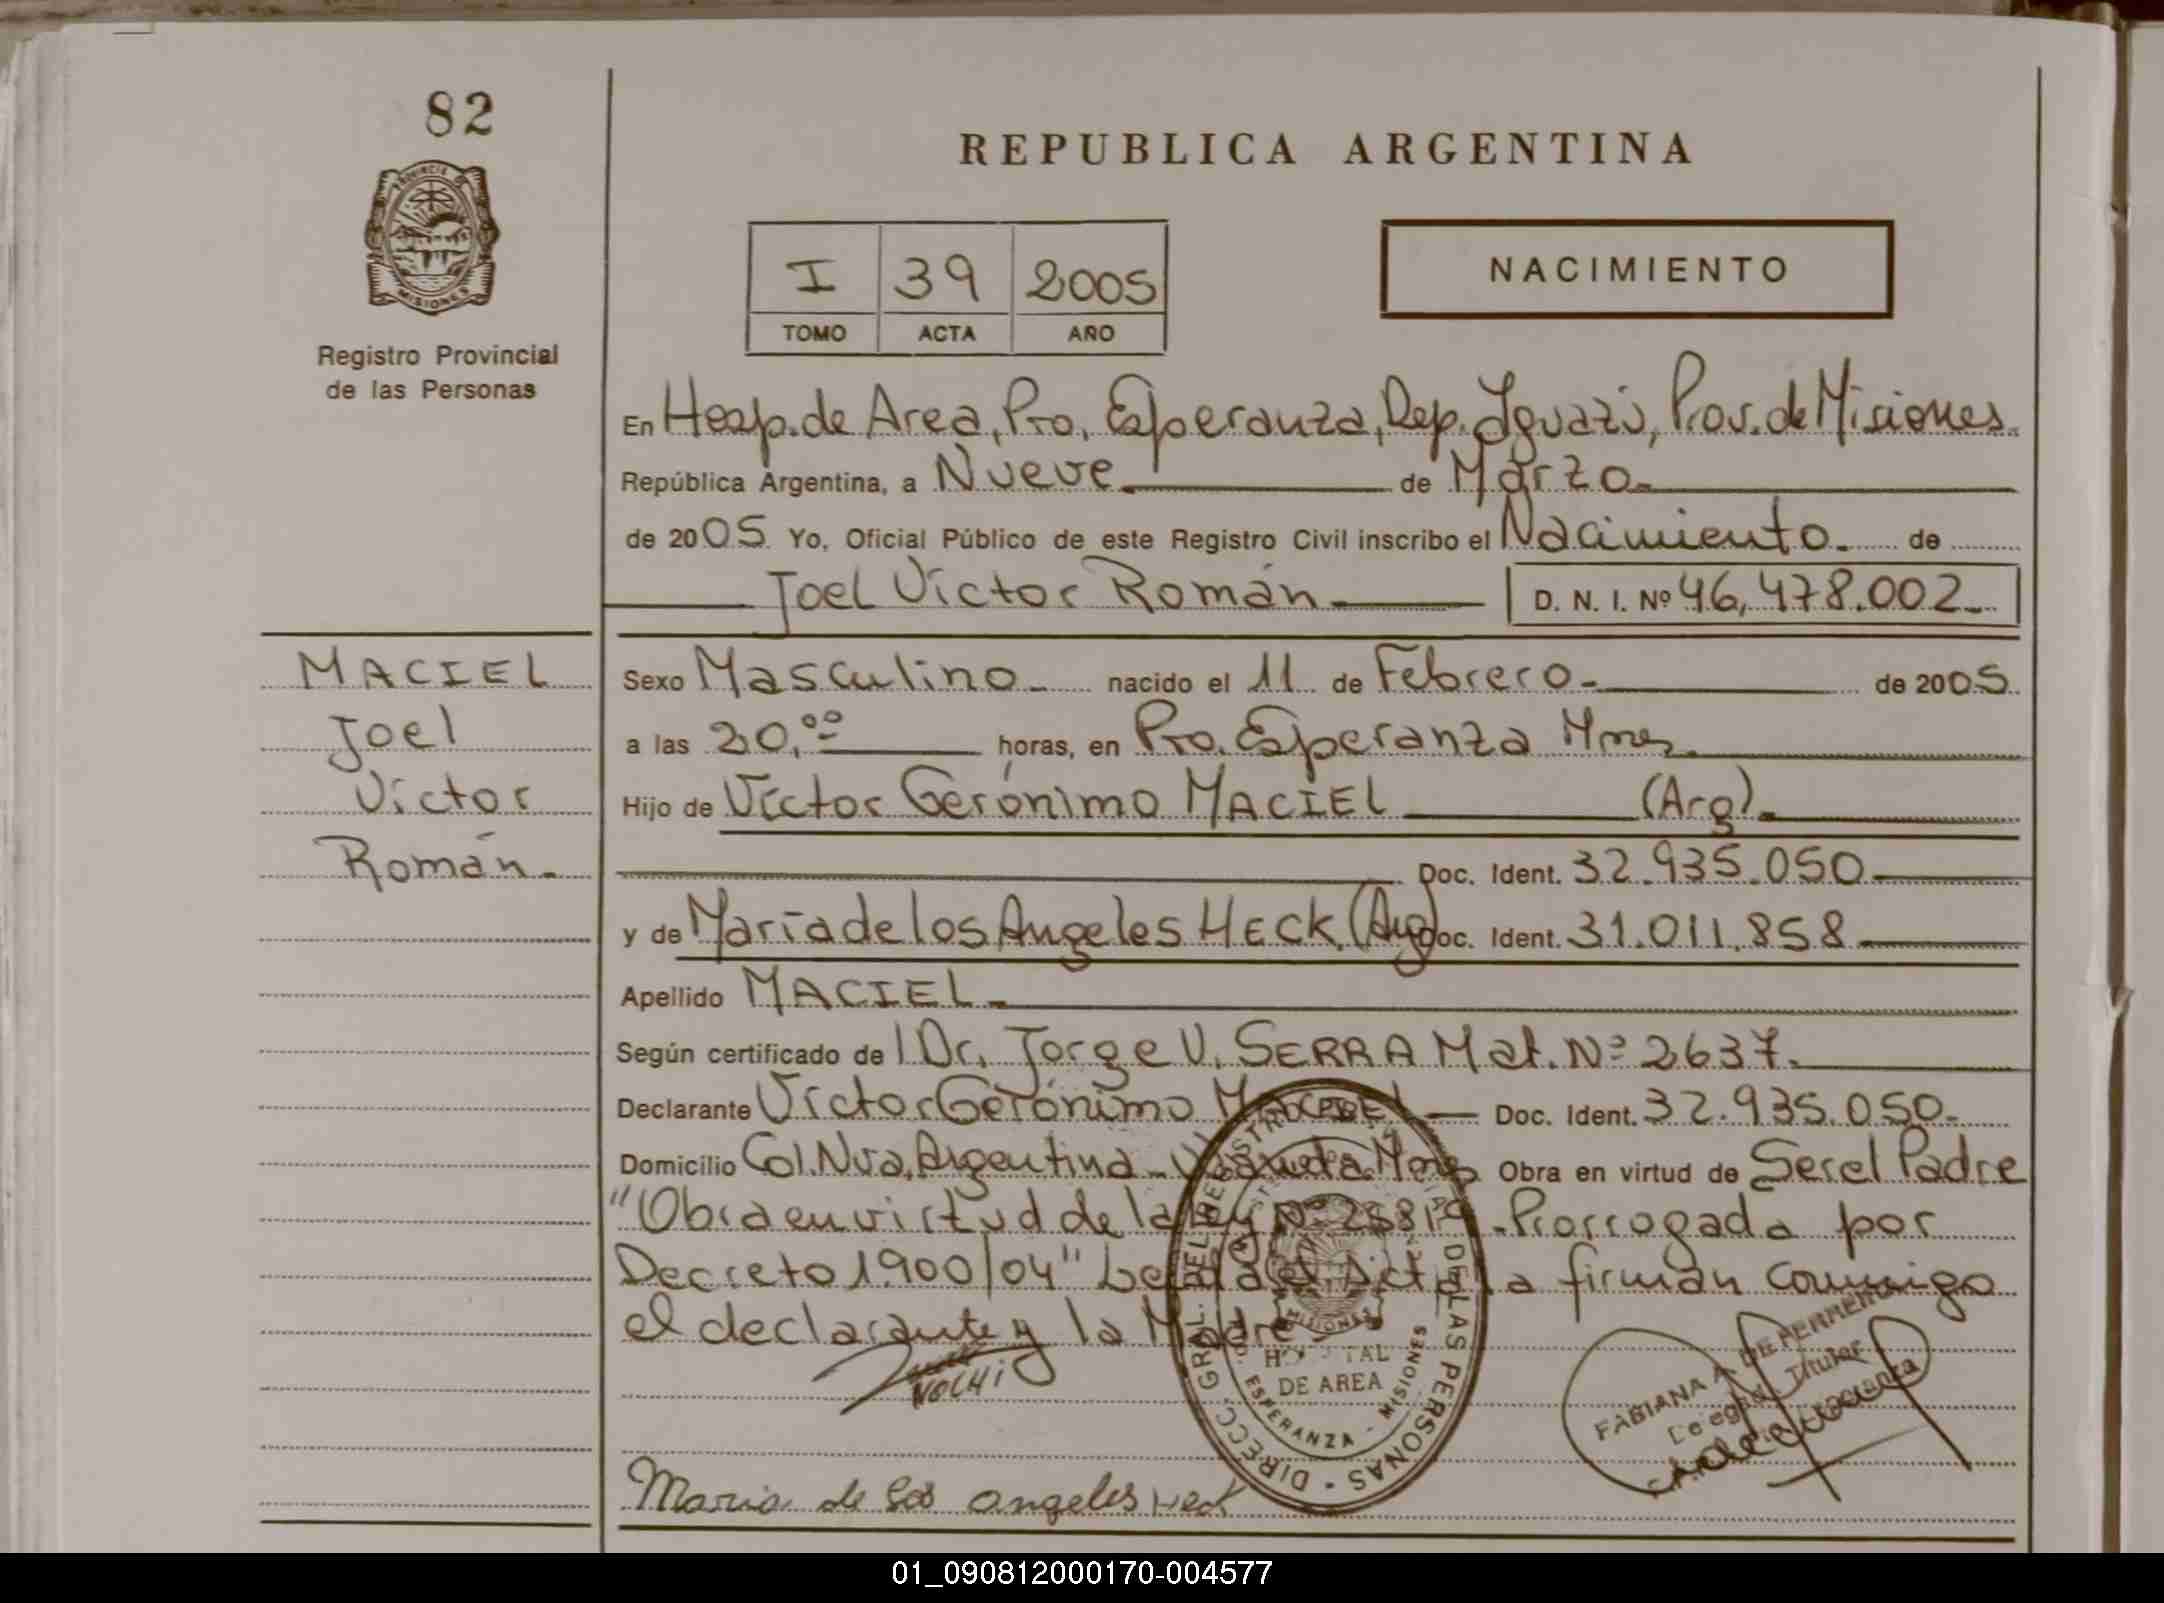 82
REPUBLICA ARGENTINA
PROVINCIA DE
MISIONES
Registro Provincial
de las Personas
I 39 2005
TOMO ACTA AÑO
NACIMIENTO
En Hosp. de Area, Pto. Esperanza, Dep. Iguazú, Prov. de Misiones.
República Argentina, a Nueve de Marzo
de 2005 Yo, Oficial Público de este Registro Civil inscribo el Nacimiento. de
Joel Víctor Román D. N. I. Nº 46,478.002
MACIEL
Joel
Víctor
Román.
Sexo Masculino nacido el 11 de Febrero. de 2005
a las 20,00 horas, en Pto. Esperanza Mnes.
Hijo de Víctor Gerónimo MACIEL (Arg).
Doc. Ident. 32.935.050
y de María de los Angeles HECK, (Arg) Doc. Ident. 31.011.858
Apellido MACIEL
Según certificado de l Dr. Jorge V. SERRA Mat. Nº 2637.
Declarante Víctor Gerónimo MACIEL Doc. Ident. 32.935.050.
Domicilio Col. Nva. Argentina - Mnes Obra en virtud de Ser el Padre
"Obra en virtud de la Ley Nº 25819. Prorrogada por
Decreto 1900/04" Leída el Acta la firman conmigo
el declarante y la Madre
NOCHI
DIRECC. GRAL. DEL REGISTRO PROVINCIAL DE LAS PERSONAS
HOSPITAL
DE AREA
ESPERANZA - MISIONES
FABIANA A. DE FERREIRA
Delegada Titular
Maria de los angeles Heck
01_090812000170-004577